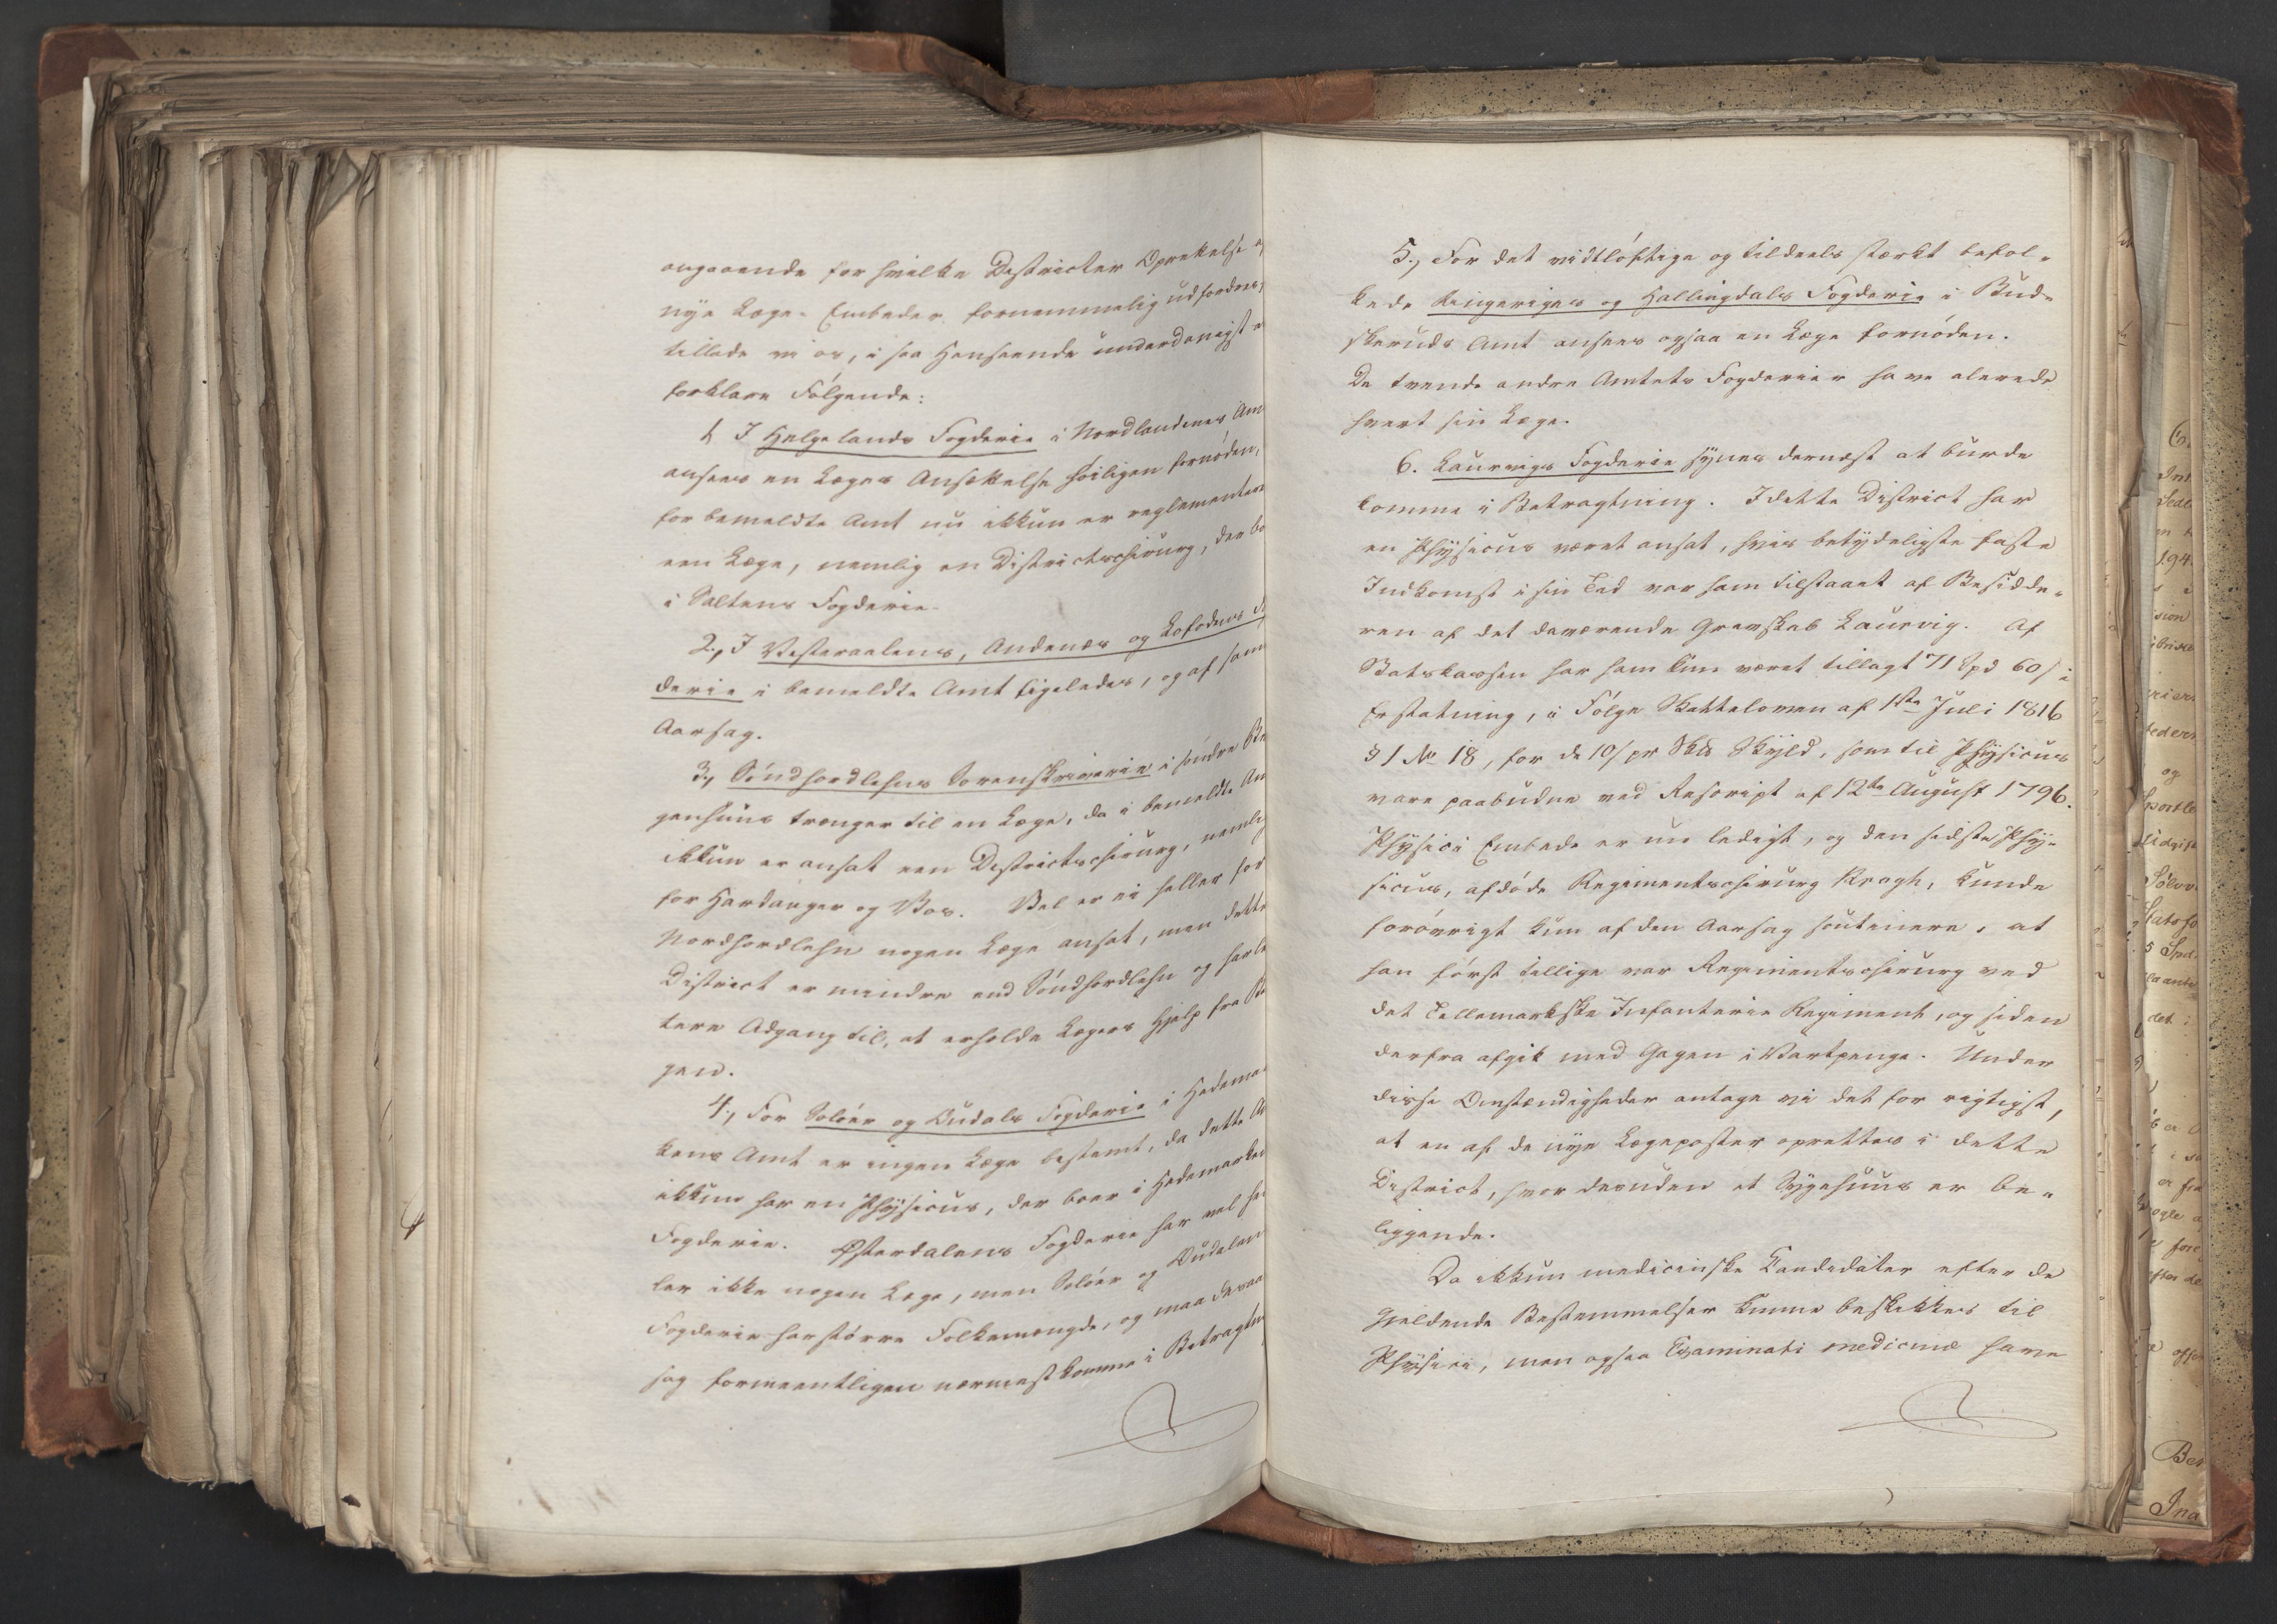 angaaende for hvilke Districter Oprettelse a
nye Læge-Embeder fornemmelig udfordres,
tillade vi os, i saa Henseende underdanigst a
forklare Følgende:
1, I Helgelands Fogderie i Nordlandenes Am
ansees en Læges Ansættelse høiligen fornøden,
for bemeldte Amt nu ikkun er reglementere
een Læge, nemlig en Districtschirurg, der bo
i Saltens Fogderie.
2., I Vesteraalens, Andenæs og Lofodens
derie i bemeldte Amt ligeledes, og af sam
Aarsag.
3., Søndhordlehns Sorenskriverie i søndre Be
genhuus trænger til en Læge, da i bemeldte Am
ikkun er ansat een Districtschirurg, nemlig
for Hardanger og Vos. Vel er ei heller for
Nordhordlehn nogen Læge ansat, men dette
District er mindre end Søndhordlehn og har le
tere Adgang til, at erholde Lægers Hjelp fra Be
gen.
4., For Soløer og Oudals Fogderie i Hedema
kens Amt er ingen Læge bestemt, da dette A
ikkun har en Physicus, der boer i Hedemarken
Fogderie. Østerdalens Fogderie har vel he
ler ikke nogen Læge, men Soløer og Oudalen
Fogderie har større Folkemængde, og maa
sag formeentligen nærmest komme i Betragtn
5., For det vidtløftige og tildeels stærkt befol-
kede Ringeriges og Hallingdals Fogderie i Bud-
skeruds Amt ansees ogsaa en Læge fornøden.
De tvende andre Amtets Fogderier have alerede
hvert sin Læge.
6. Laurvigs Fogderie synes dernæst at burde
komme i Betragtning. I dette District har
en Physicus været ansat, hvis betydeligste faste
Indkomst i sin Tid var ham tilstaaet af Besidde-
ren af det daværende Grevskab Laurvig. Af
Statskassen har ham kun været tillagt 71 Spd 60 s i
Erstatning, i Følge Skatteloven af 1ste Juli 1816
§ 1 No 18, for de 10 s pr Skyld, som til Physicus
vare paabudne ved Rescript af 12te August 1796.
Physici Embede er nu ledigt, og den sidste Phy-
sicus, afdøde Regimentschirurg Kragh, kunde
forøvrigt kun af den Aarsag soutinere, at
han først tillige var Regimentschirurg ved
det Tellemarkske Infanterie Regiment, og siden
derfra afgik med Gagen i Vartpenge. Under
disse Omstændigheder antage vi det for rigtigst,
at en af de nye Lægeposter oprettes i dette
District, hvor desuden et Sygehuus er be-
liggende.
Da ikkun medicinske Candidater efter de
gjeldende Bestemmelser kunne beskikkes til
Physici, men ogsaa Examinati medicinæ have